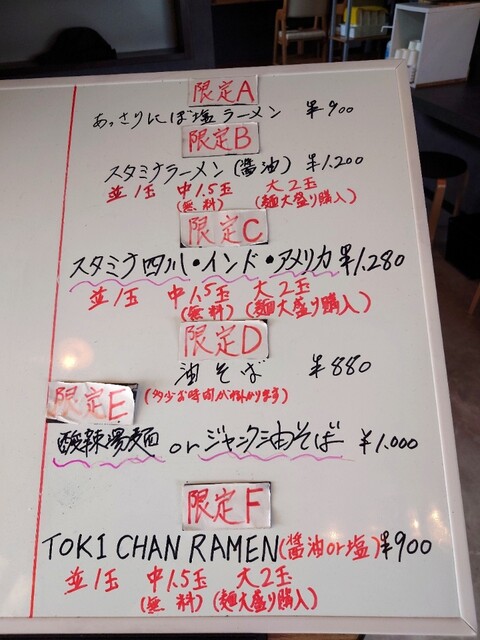 限定A
あっさりにぼ塩ラーメン ¥900
限定B
スタミナラーメン(醤油) ¥1.200
並1玉 中1.5玉 大2玉
(無料) (麺大盛り購入)
限定C
スタミナ四川・インド・アメリカ ¥1.280
並1玉 中1.5玉 大2玉
(無料) (麺大盛り購入)
限定D
油そば ¥880
(多少お時間が掛かります)
限定E
酸辣湯麺 or ジャンク油そば ¥1.000
限定F
TOKI CHAN RAMEN(醤油or塩) ¥900
並1玉 中1.5玉 大2玉
(無料) (麺大盛り購入)